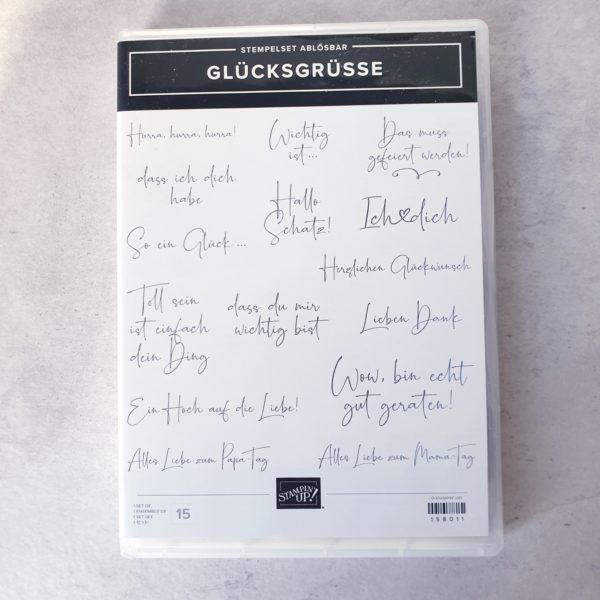 STEMPELSET ABLÖSBAR
GLÜCKSGRÜSSE
Hurra, hurra, hurra!
Wichtig
ist...
Das muss
gefeiert werden!
dass ich dich
habe
Hallo
Schatz!
Ich dich
So ein Glück ...
Herzlichen Glückwunsch
Toll sein
ist einfach
dein Ding
dass du mir
wichtig bist
Lieben Dank
Wow, bin echt
gut geraten!
Ein Hoch auf die Liebe!
Alles Liebe zum Papa-Tag
Alles Liebe zum Mama-Tag
STAMPIN' UP!
© STAMPIN' UP!
SET OF
15
158011